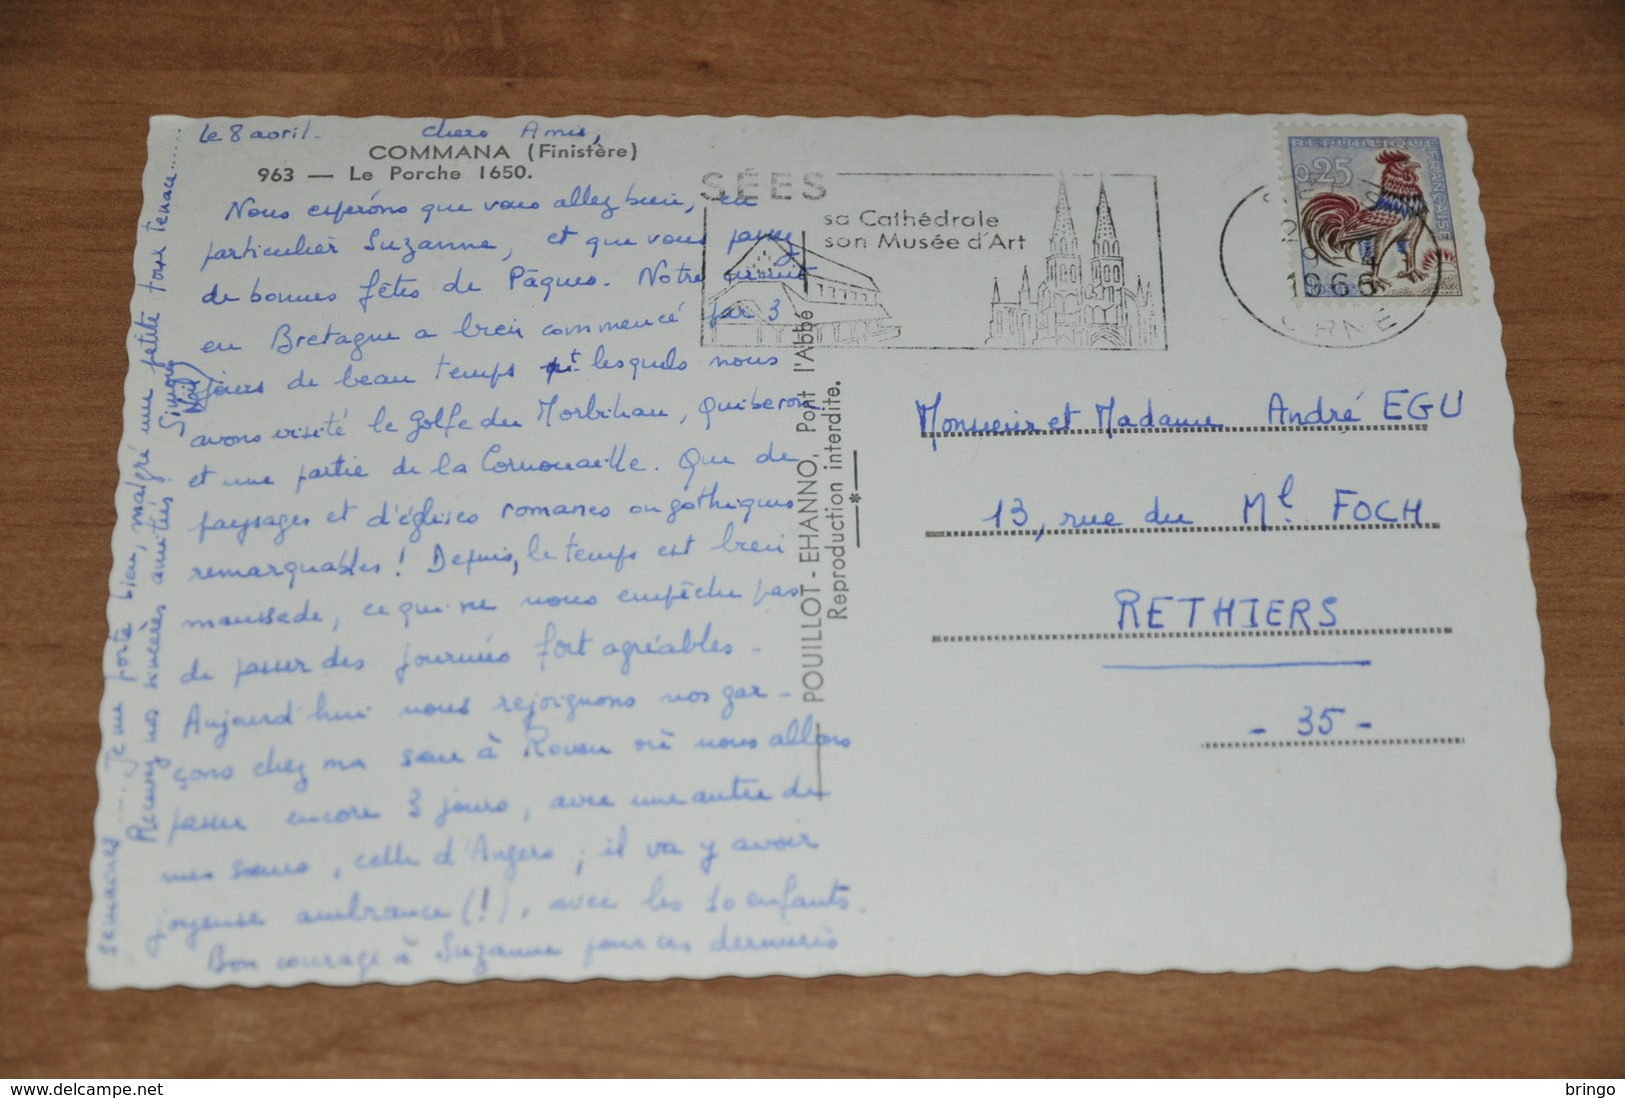 le 8 avril. Chers Amis,
COMMANA (Finistère)
963 — Le Porche 1650.
Nous espérons que vous allez bien, en
particulier Suzanne, et que vous passez
de bonnes fêtes de Pâques. Notre circuit
en Bretagne a bien commencé par 3
jours de beau temps lesquels nous
avons visité le Golfe du Morbihan, Quiberon
et une partie de la Cornouaille. Que de
paysages et d'églises romanes ou gothiques
remarquables ! Depuis, le temps est bien
maussade, ce qui ne nous empêche pas
de passer des journées fort agréables.
Aujourd'hui nous rejoignons nos gar-
çons chez ma sœur à Rouen où nous allons
passer encore 3 jours, avec une autre de
mes sœurs, celle d'Angers ; il va y avoir
joyeuse ambiance (!), avec les 10 enfants.
Bon courage à Suzanne pour ces dernières
semaines ..... Je me porte bien, malgré une petite toux tenace.....
Recevez nos sincères amitiés. Simone
Noël
POUILLOT - EHANNO, Pont l'Abbé
Reproduction interdite.
SÉES
sa Cathédrale
son Musée d'Art
REPUBLIQUE FRANÇAISE
0,25
1966
ORNE
Monsieur et Madame André EGU
13, rue du Ml FOCH
RETHIERS
- 35 -
delcampe.net
bringo